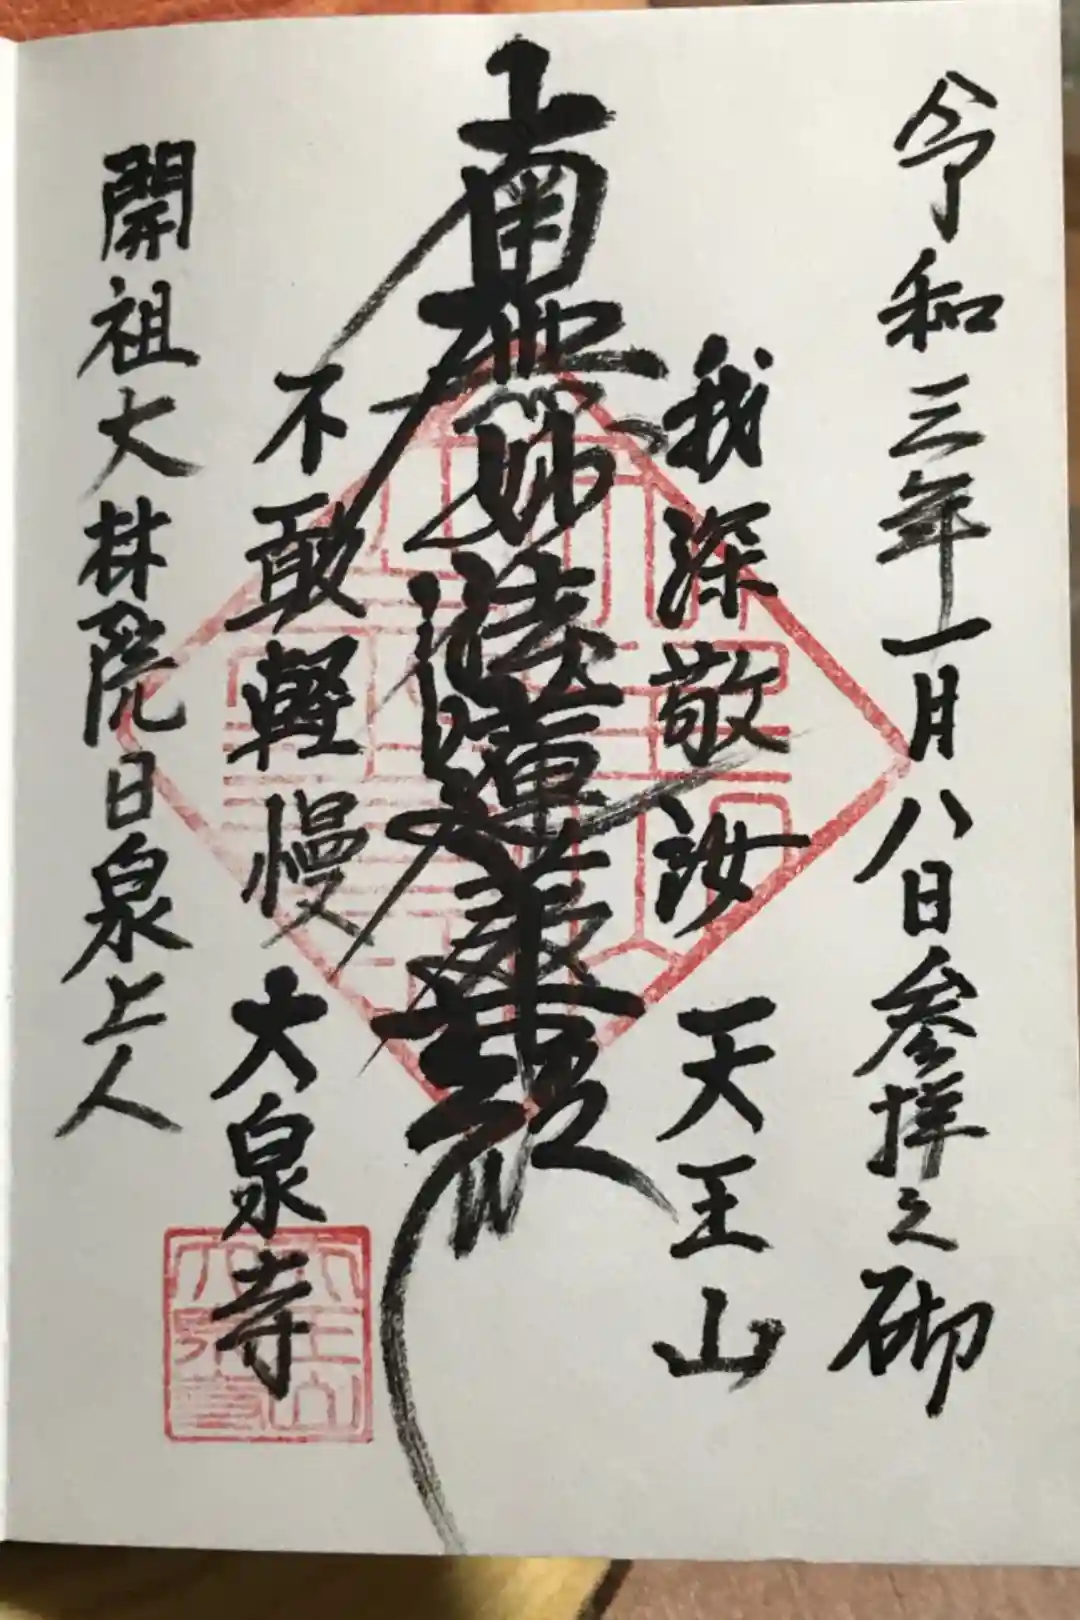 令和三年一月八日参拝之砌
我深敬汝 天王山
南無妙法蓮華経
不敢軽慢 大泉寺
開祖大林院日泉上人